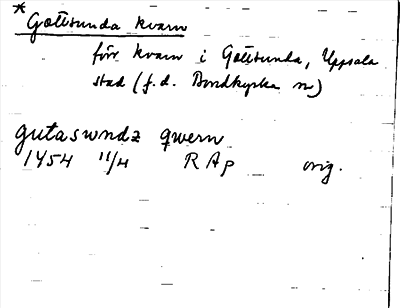 * Gottsunda kvarn
förr kvarn i Gottsunda, Uppsala
stad (f.d. Bondkyrka sn)
gutaswndz qwern
1454 11/4 RAp orig.